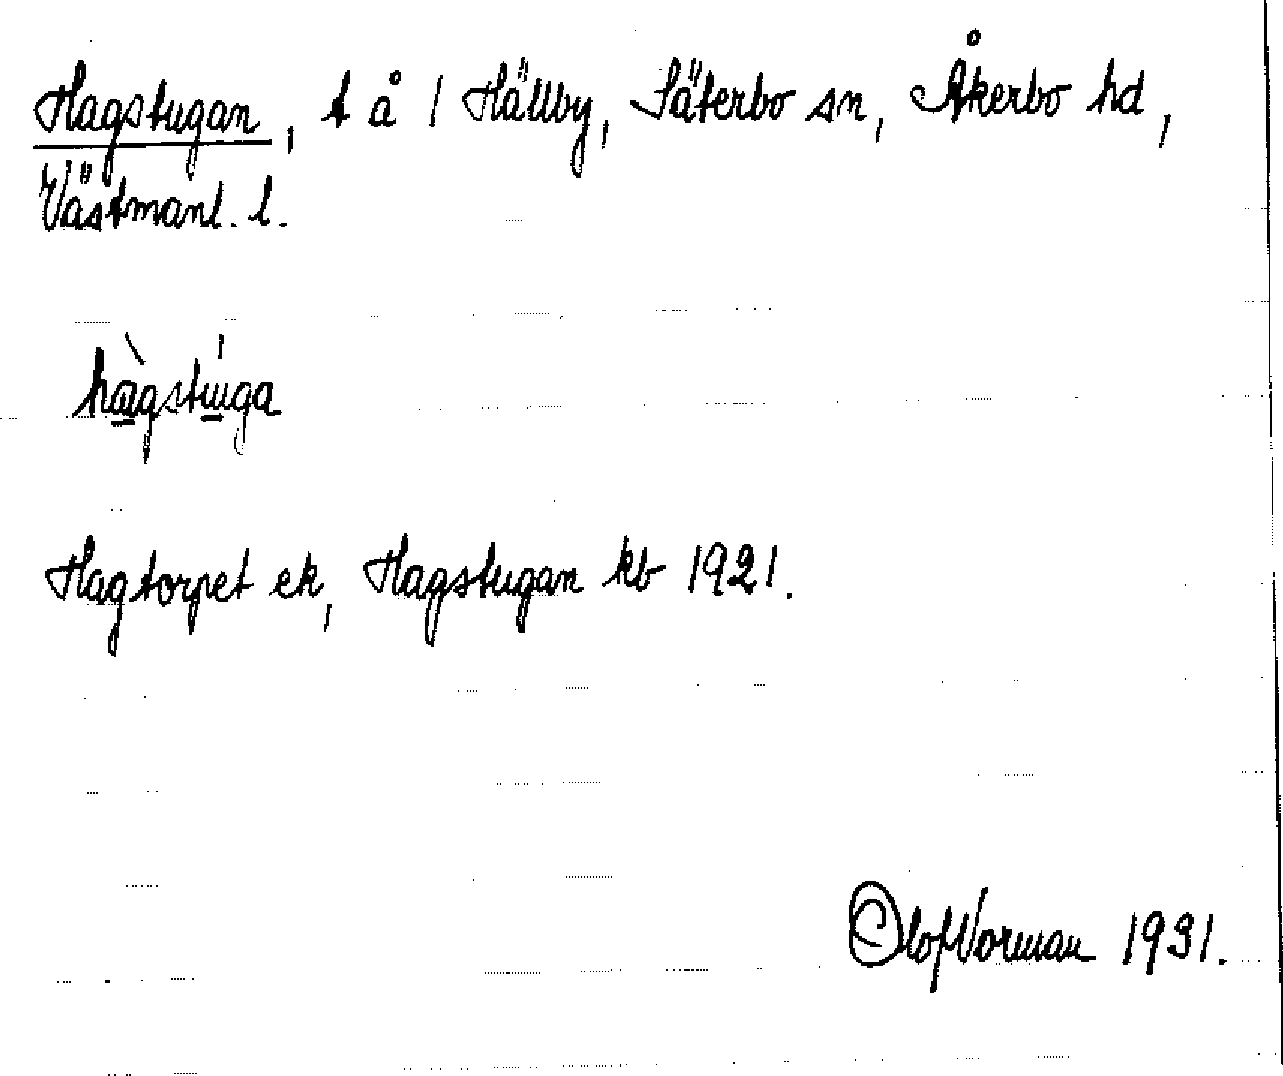 Hagstugan, t å 1 Hällby, Säterbo sn, Åkerbo hd,
Västmanl. l.
hàgstúga
Hagtorpet ek, Hagstugan kb 1921.
Olof Norman 1931.